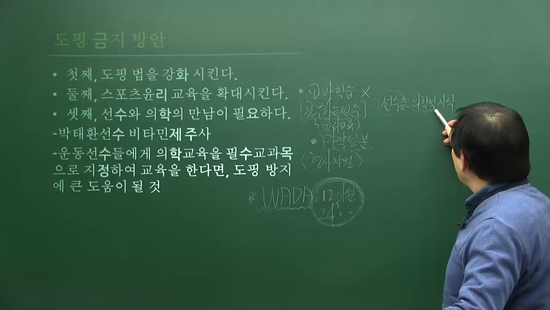 도핑 금지 방안
• 첫째, 도핑 법을 강화 시킨다.
• 둘째, 스포츠윤리 교육을 확대시킨다.
• 셋째, 선수와 의학의 만남이 필요하다.
-박태환선수 비타민제 주사
-운동선수들에게 의학교육을 필수교과목
으로 지정하여 교육을 한다면, 도핑 방지
에 큰 도움이 될 것
강화학습 X
WADA